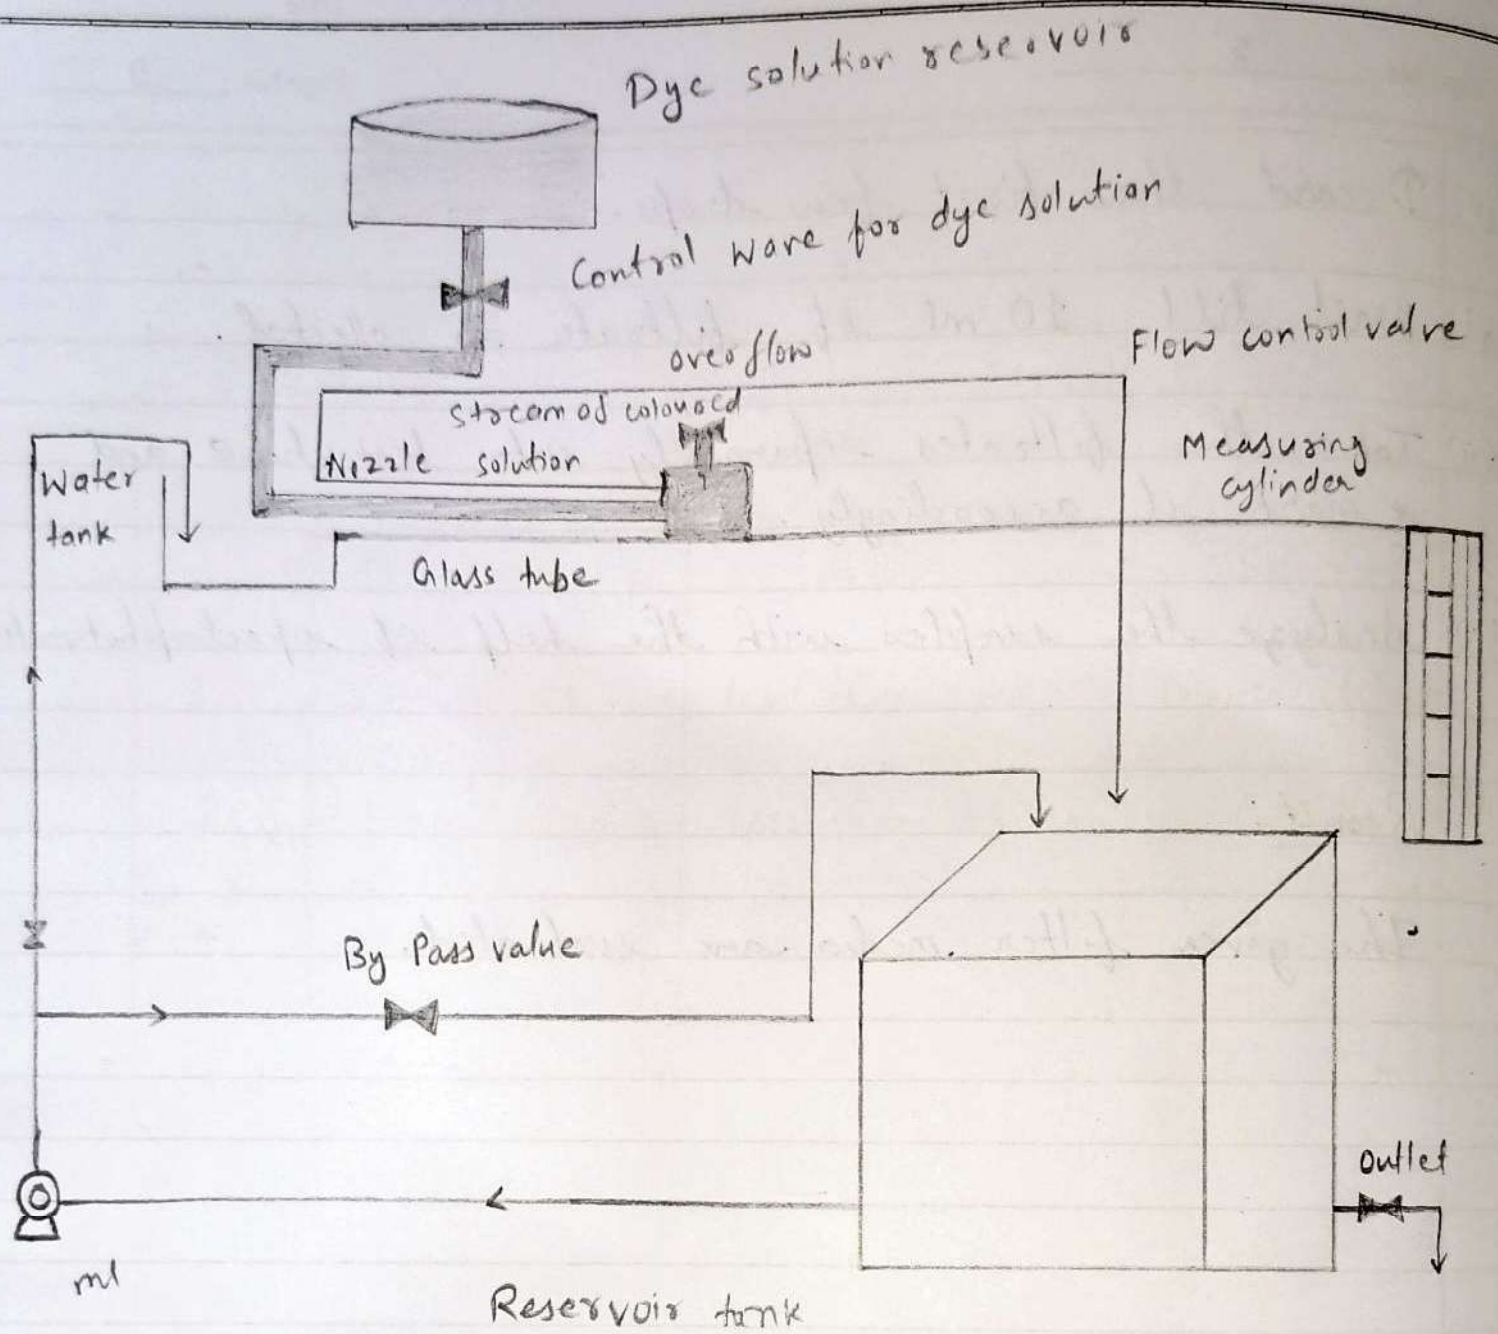 Dye solution reservoir
Control wave for dye solution
overflow
Flow control valve
Stream of coloured
Nozzle solution
Measuring
cylinder
Water
tank
Glass tube
By Pass value
Outlet
ml
Reservoir tank